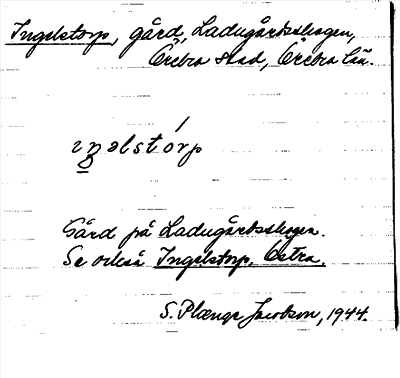 Ingelstorp, gård, Ladugårdsskogen,
Örebro stad, Örebro län.
ɪŋəlstórp
Gård på Ladugårdsskogen.
Se också Ingelstorp, Östra.
S. Plænge Jacobson, 1944.